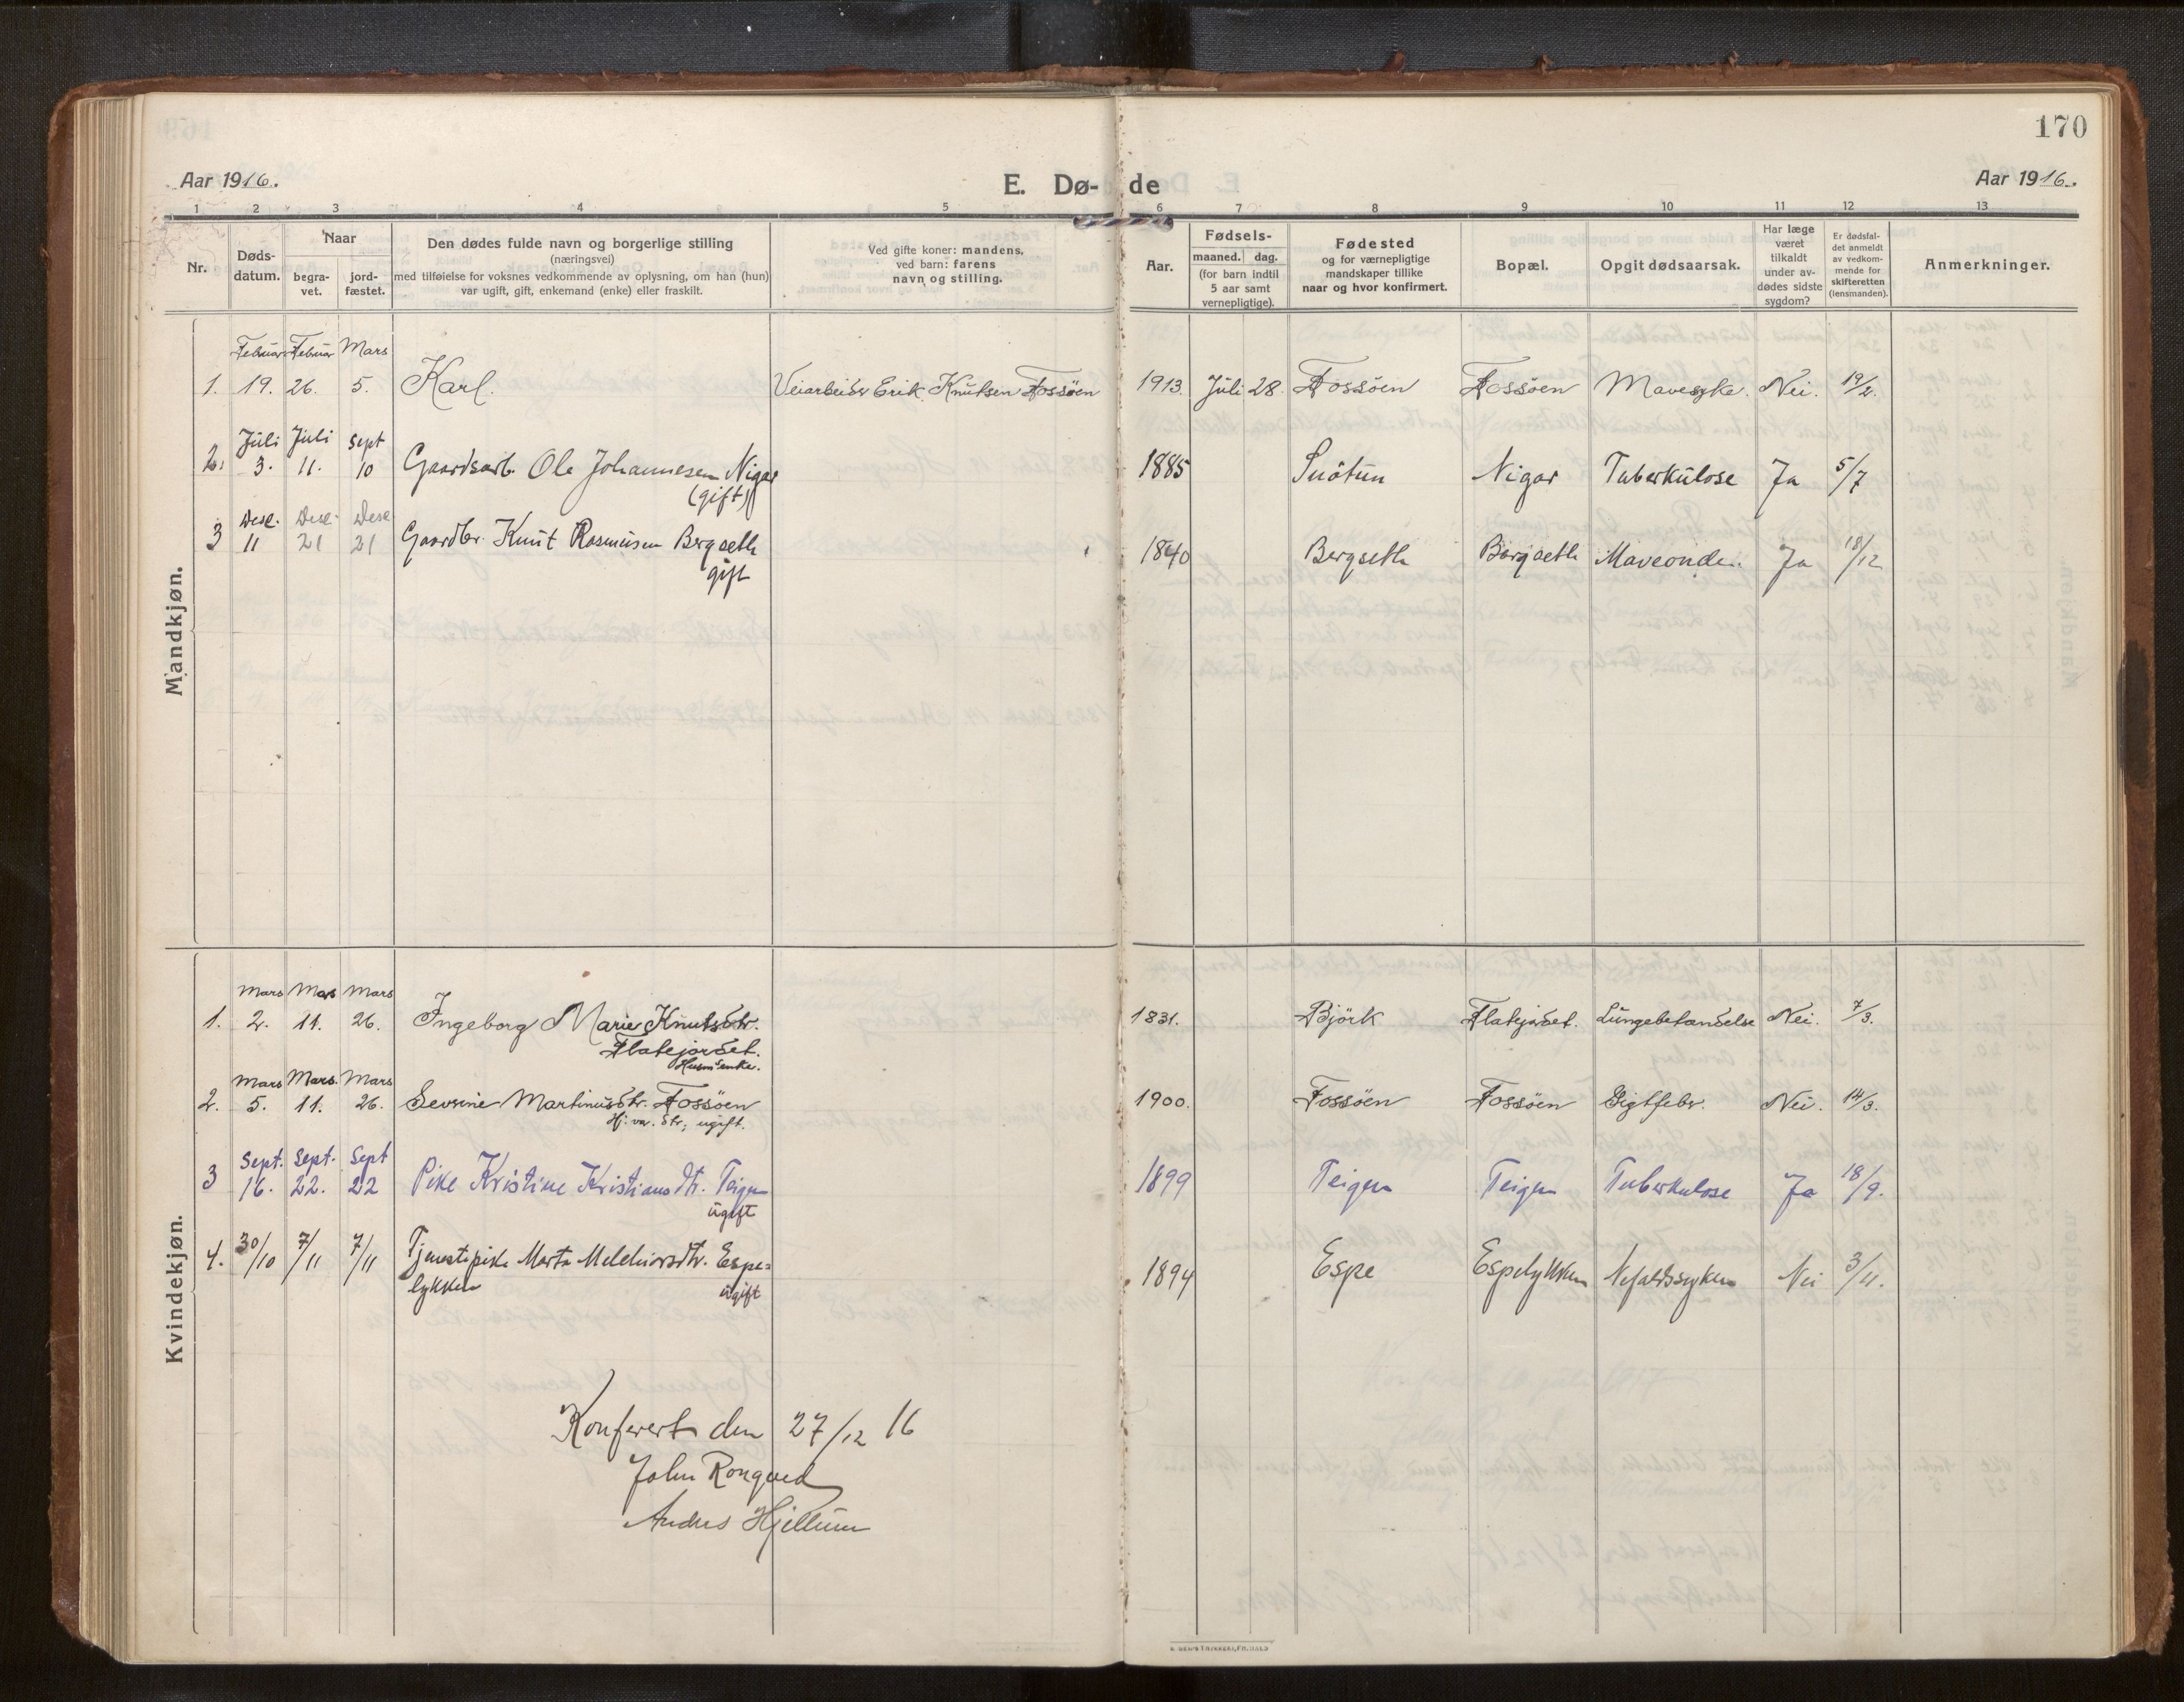 170
Aar 1916.
E. Dø- de
Aar 1916.
1 2 3 4 5 6 7 8 9 10 11 12 13
Nr.
Døds-
datum.
Naar
begra-
vet.
jord-
fæstet.
Den dødes fulde navn og borgerlige stilling
(næringsvei)
med tilføielse for voksnes vedkommende av oplysning, om han (hun)
var ugift, gift, enkemand (enke) eller fraskilt.
Ved gifte koner: mandens,
ved barn: farens
navn og stilling.
Aar.
Fødsels-
maaned. dag.
(for barn indtil
5 aar samt
vernepligtige).
Fødested
og for værnepligtige
mandskaper tillike
naar og hvor konfirmert.
Bopæl.
Opgit dødsaarsak.
Har læge
været
tilkaldt
under av-
dødes sidste
sygdom?
Er dødsfal-
det anmeldt
av vedkom-
mende for
skifteretten
(lensmanden).
Anmerkninger.
Mandkjøn.
Februar Februar Mars
1. 19. 26. 5. Karl. Veiarbeider Erik Knutsen Fossöen 1913. Juli 28. Fossöen Fossöen Mavesyke. Nei. 19/2.
Juli Juli Sept
2. 3. 11. 10 Gaardsarb. Ole Johannesen Nigar 1885 Snötun Nigar Tuberkulose Ja 5/7
(gift)
Dese. Dese. Dese
3 11 21 21 Gaardbr. Knut Rasmusen Bergseth 1840 Bergseth Bergseth Maveonde. Ja 18/12
gift
Kvindekjøn.
Mars Mars Mars
1. 2. 11. 26. Ingeborg Marie Knutsdtr. 1831. Björk Flatejordet. Lungebetændelse Nei. 7/3.
Flatejordet.
Husm'enke.
Mars Mars. Mars
2. 5. 11. 26. Severine Martinusdtr. Fossöen 1900. Fossöen Fossöen Gigtfeber. Nei. 14/3.
Hj. vær. dtr; ugift.
Sept. Sept. Sept
3 16. 22. 22 Pike Kristine Kristiansdtr. Teigen 1899 Teigen Teigen Tuberkulose Ja 18/9.
ugift
4. 30/10 7/11 7/11 Tjenestepike Marta Melchiorsdtr. Espe= 1894 Espe Espelykken Nefaldssyken Nei 3/11.
lykken ugift
Konferert den 27/12 16
John Ronqued
Andres Hjellum